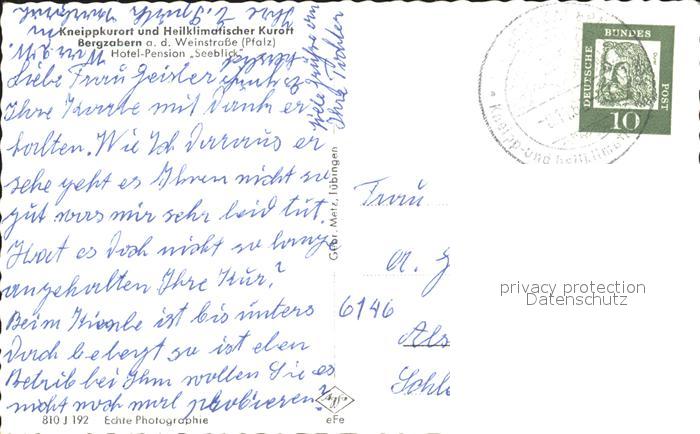 Kneippkurort und Heilklimatischer Kurort
Bergzabern a. d. Weinstraße (Pfalz)
Hotel-Pension „Seeblick"
Liebe Frau Geisler
Ihre Karte mit Dank er
halten. Wie Ich daraus er
sehe geht es Ihnen nicht so
gut was mir sehr leid tut.
Hat es doch nicht so lang
angehalten Ihre Kur?
Beim ist bis unters
Dach belegt so ist eben
Betrib bei Ihm wollen Sie es
nicht noch mal probieren?
viele Grüße an
Ihre Tochter
810 J 192 Echte Photographie
Gebr. Metz, Tübingen
eFe
Frau
A. G
6146
Als
Schl
DEUTSCHE BUNDES POST
10
Kneipp- und heilklimat
privacy protection
Datenschutz